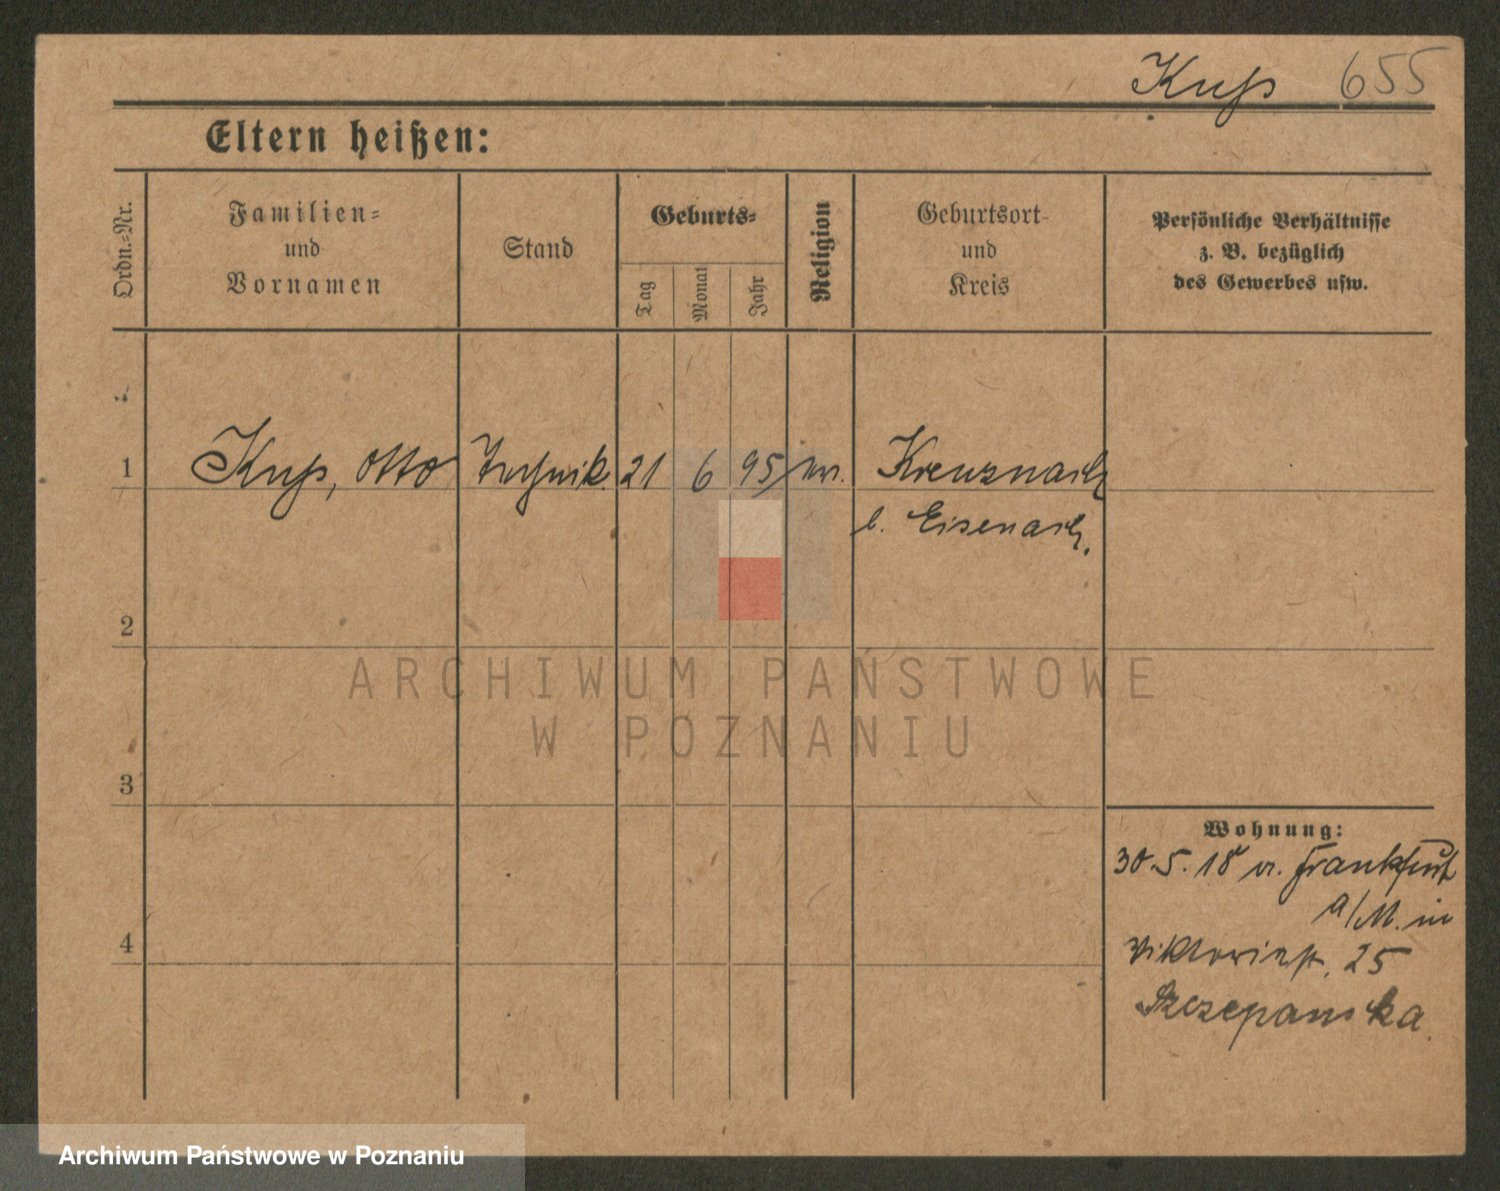 Kuß 655
Eltern heißen:
Ordn.-Nr.
Familien- und Vornamen
Stand
Geburts-
Tag
Monat
Jahr
Religion
Geburtsort und Kreis
Persönliche Verhältnisse
z. B. bezüglich
des Gewerbes usw.
1 Kuß, Otto Technik. 21 6 95 ev. Kreuznach
b. Eisenach.
2
ARCHIWUM PAŃSTWOWE
W POZNANIU
3
Wohnung:
30.5.18 v. Frankfurt
a/M. in
4
Viktoriastr. 25
Szczepanska.
Archiwum Państwowe w Poznaniu